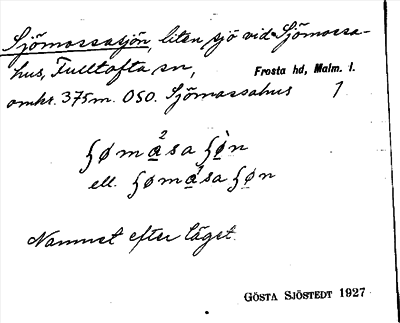 Sjömossasjön, liten sjö vid Sjömossa-
hus, Fulltofta sn, Frosta hd, Malm. l.
omkr. 375 m. OSO. Sjömossahus 1
ʃømasa ʃøn
ell. ʃømasa ʃøn
Namnet efter läget.
GÖSTA SJÖSTEDT 1927